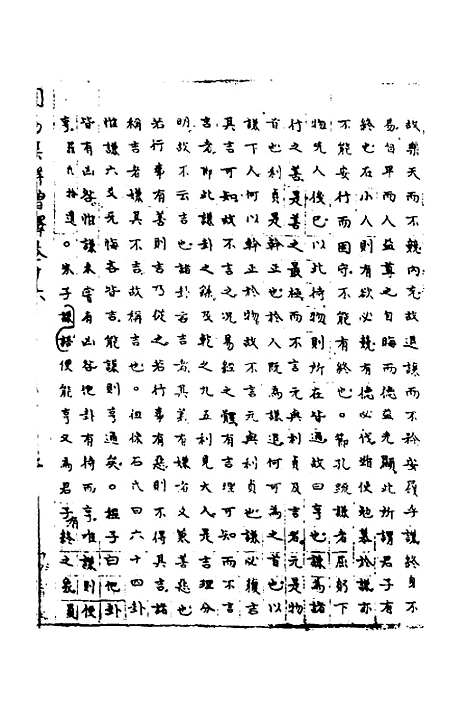 故樂天而不競內充故退讓而不矜安履乎謙終身不
易自卑而人益尊之自晦而德益光顯此所謂君子有
終也在小人則有欲必競有德必伐雖使勉慕於謙亦
不能安行而固守不能有終也。鄭孔疏謙者屈躬下
物先人後已以此待物則所在皆通故曰亨也謙為諸
行之善是善之最極而不言元與利貞及吉者元是物
首也利貞是幹正也於人既為謙退何可為之首也以
謙下人何以幹正於物故不言元與利貞也謙必獲吉
其吉可知故不言之況易經之體有吉理可知而不言
吉者即此謙卦之繇及乾之九五利見大人是吉理分
明故不云吉也諸卦言吉者其義有嫌者爻策善惡也
若行事有善則吉乃從之若行事有惡則不得其吉諸
稱吉者嫌其不吉故稱吉也。徂徠石氏曰六十四卦
惟謙六爻无悔吝皆吉能謙則亨通矣。程子曰他卦
皆有凶咎惟謙未嘗有凶咎他卦有待而亨唯謙則便
亨。朱子語類便能亨又為君子有終之象